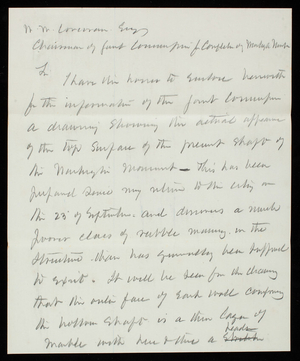 W. W. Corcoran Esq
Chairman of Joint Commission for Completn of Washgtn Monmt
Sir
I have the honor to Enclose herewith
for the information of the Joint Commission
a drawing showing the actual appearance
of the top surface of the present shaft of
the Washington Monument — This has been
prepared since my return to the city on
the 23d of September. and discloses a much
poorer class of rubble masonry in the
structure than has generally been supposed
to exist. It will be seen from the drawing
that the outer face of each wall composing
the hollow shaft is a thin layer of
marble with here & there a header